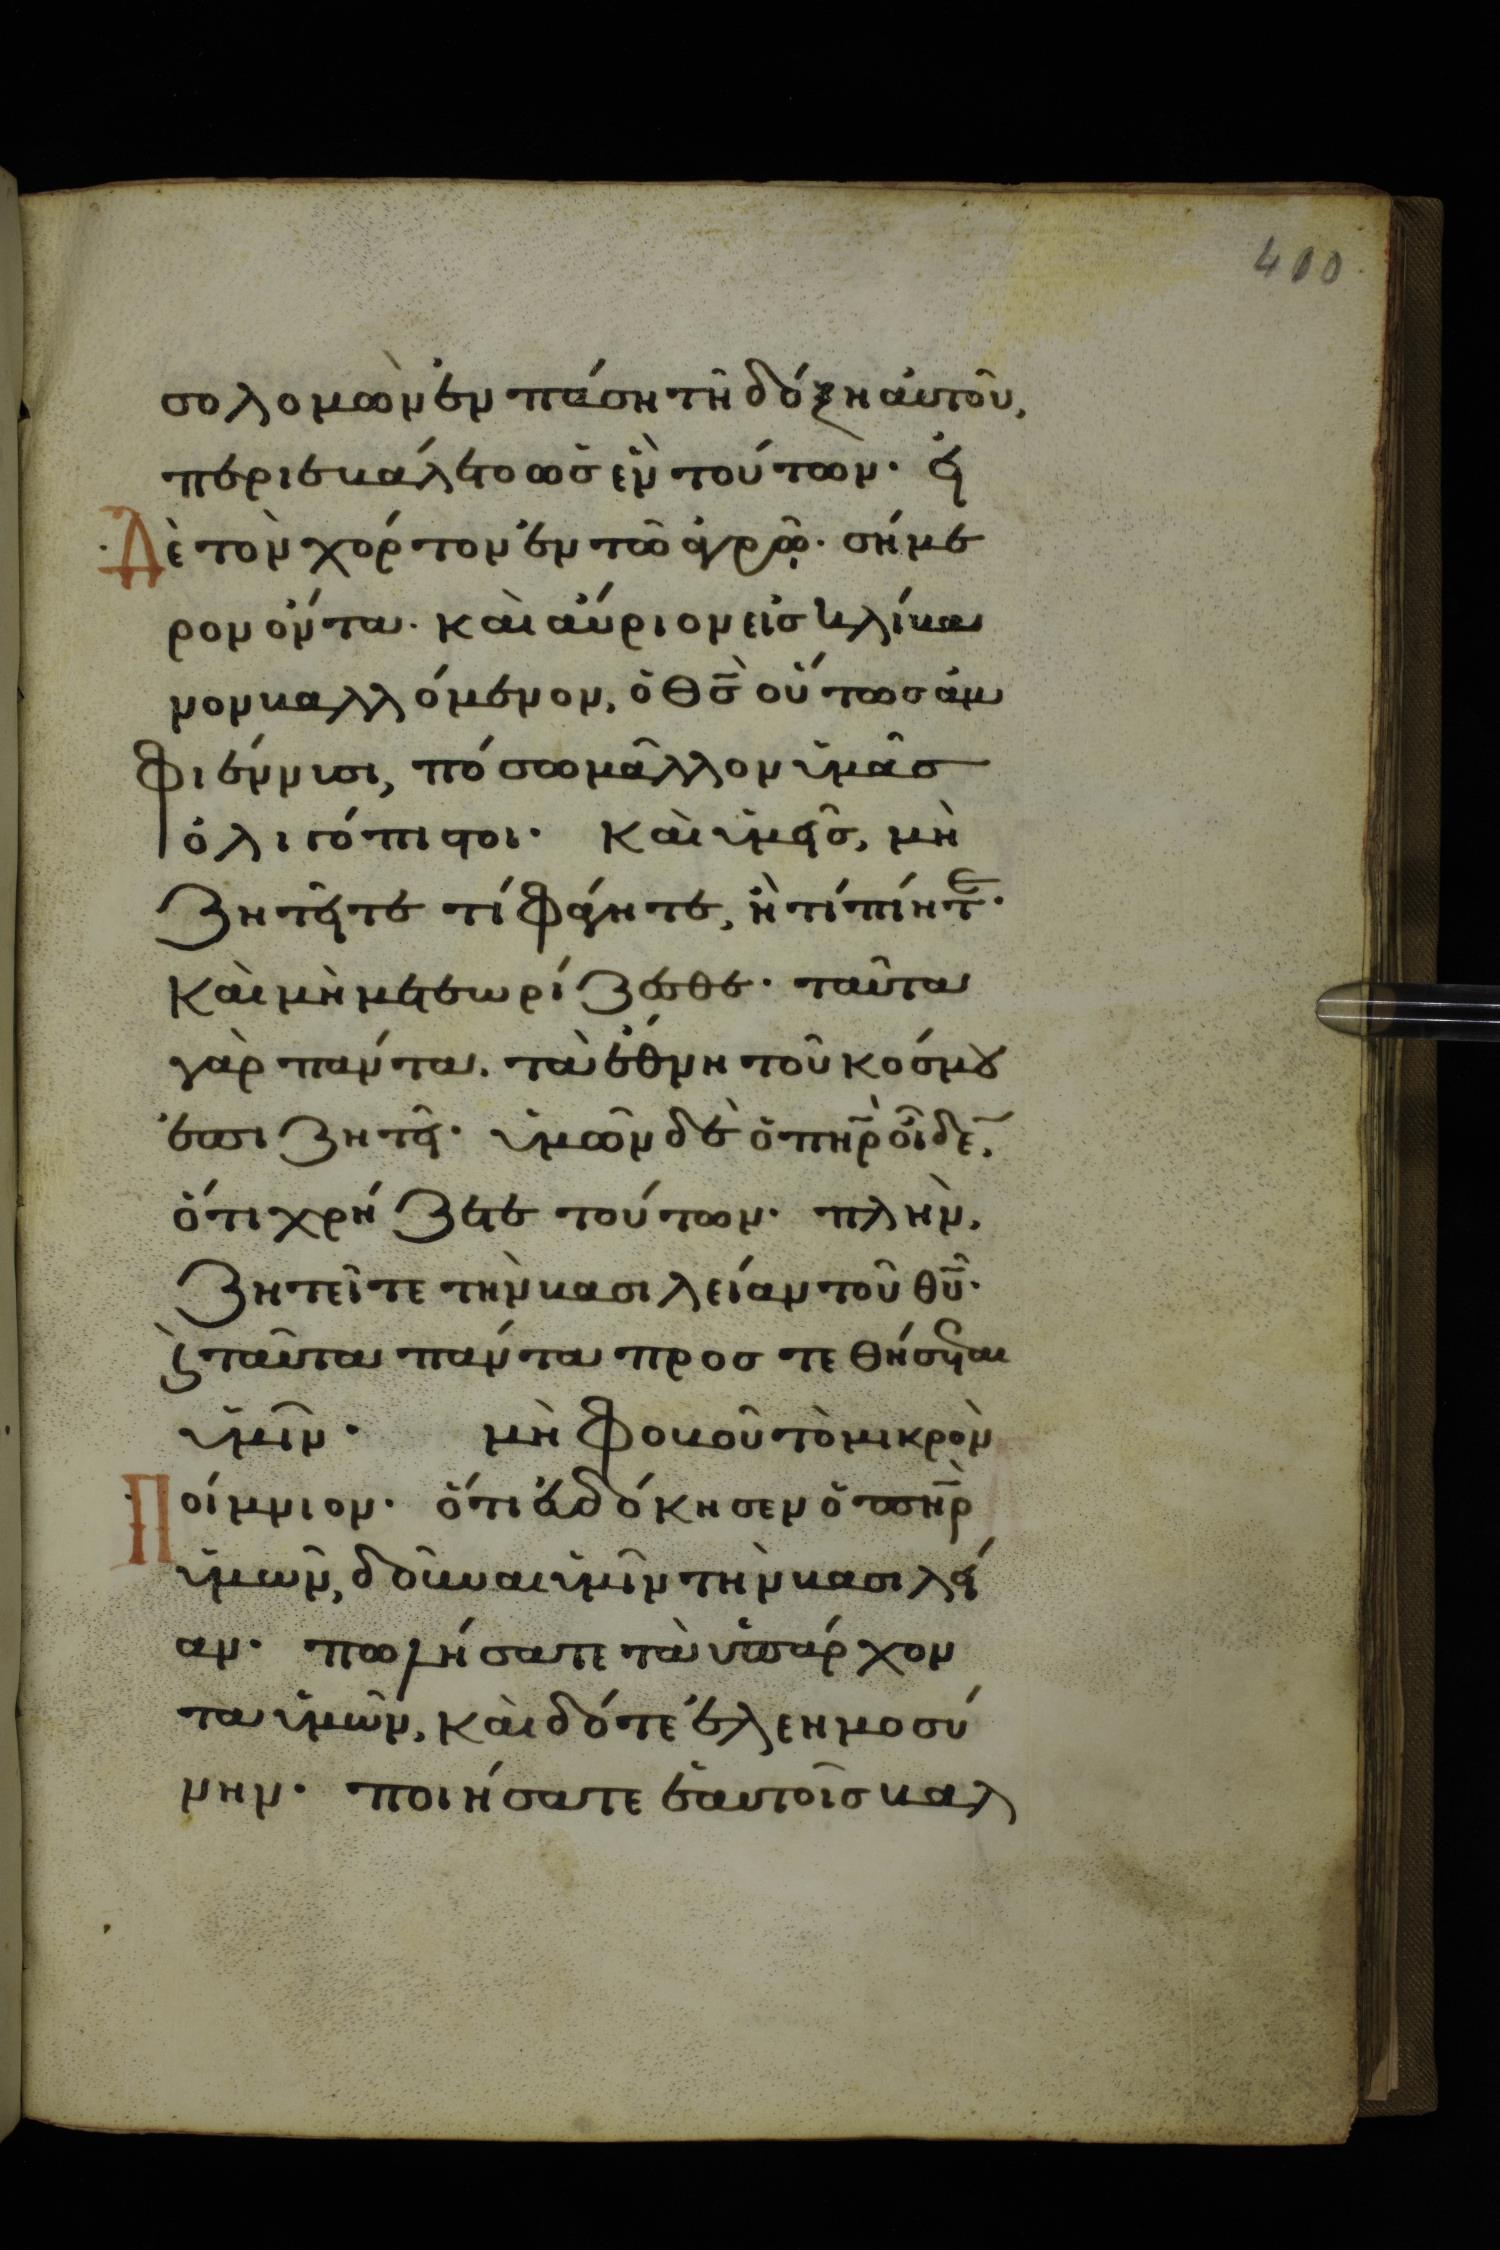 400
σολομὼν ἐν πάση τῆ δόξη αὐτοῦ,
περιεβάλετο ὡς ἓν τούτων· εἰ
δὲ τὸν χόρτον ἐν τῶ ἀγρῶ· σήμε
ρον ὄντα· καὶ αὔριον εἰς κλίβα
νον βαλλόμενον, ὁ θς̅ οὕτως ἀμ
φιέννυσι, πόσω μᾶλλον ὑμᾶς
ὀλιγόπιστοι· Καὶ ὑμεῖς, μὴ
ζητεῖτε τί φάγητε, ἢ τί πίητε·
καὶ μὴ μετεωρίζεσθε· ταῦτα
γὰρ πάντα. τὰ ἔθνη τοῦ κόσμου
ἐπιζητεῖ· ὑμῶν δὲ ὁ πη̅ρ οἶδεν,
ὅτι χρήζετε τούτων· πλὴν,
ζητεῖτε τὴν βασιλείαν τοῦ θυ̅·
καὶ ταῦτα πάντα προστεθήσεται
ὑμῖν· μὴ φοβοῦ τὸ μικρὸν
Ποίμνιον· ὅτι εὐδόκησεν ὁ πη̅ρ
ὑμῶν, δοῦναι ὑμῖν τὴν βασιλεί
αν· πωλήσατε τὰ ὑπάρχον
τα ὑμῶν, καὶ δότε ἐλεημοσύ
νην· ποιήσατε ἑαυτοῖς βαλ